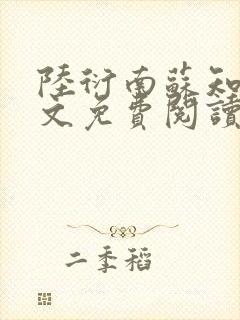 陸衍南蘇知
文免費閱讀
二季稻